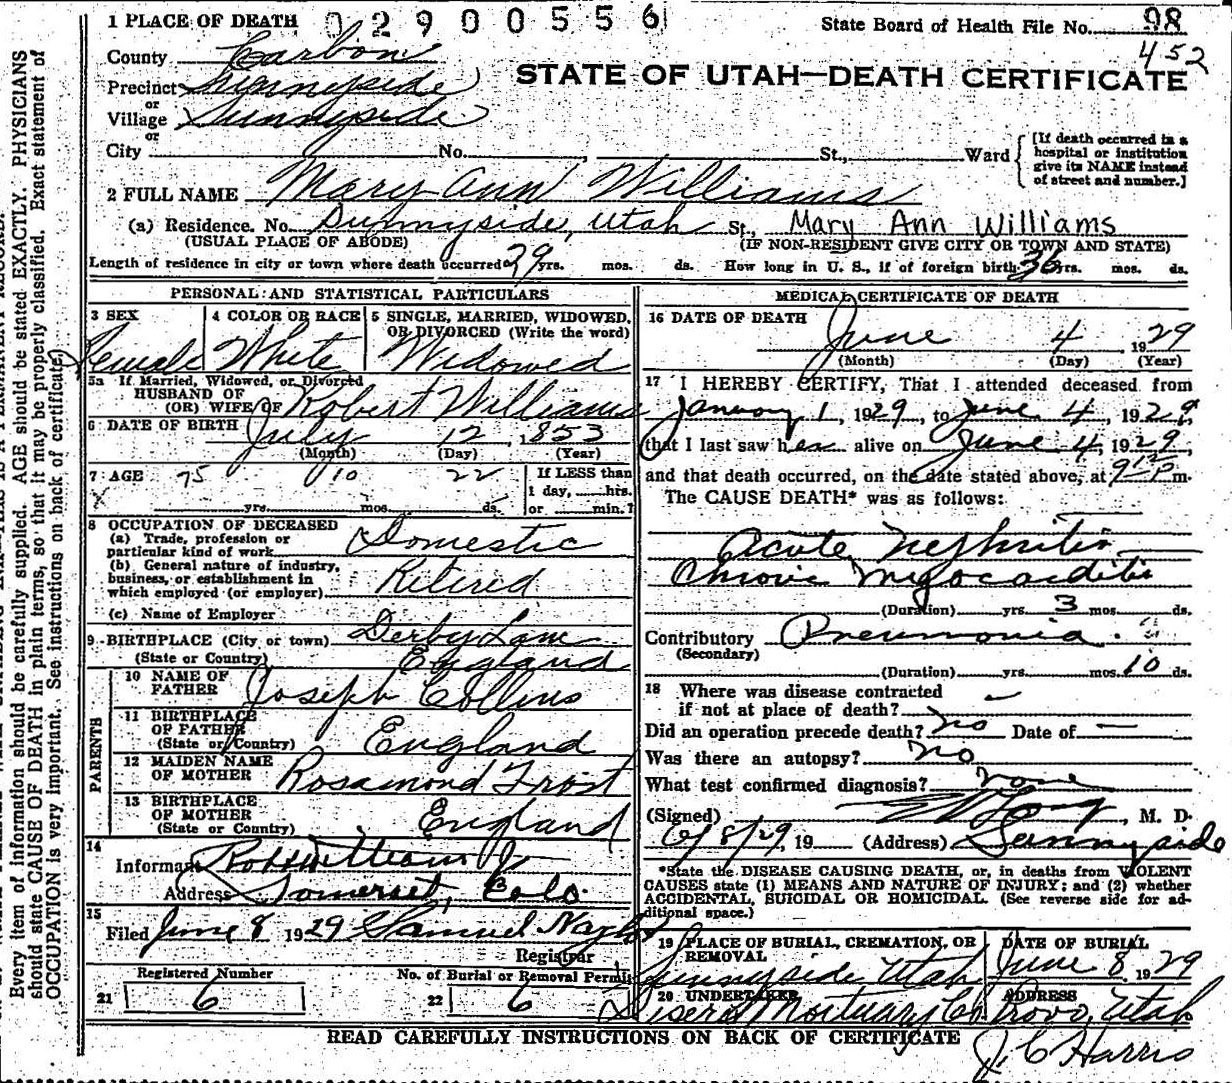 1 PLACE OF DEATH 0 2 9 0 0 5 5 6 State Board of Health File No. 98
452
County Carbon
STATE OF UTAH—DEATH CERTIFICATE
Precinct Sunnyside
or
Village Sunnyside
or
City No. St., Ward {[If death occurred in a hospital or institution give its NAME instead of street and number.]
2 FULL NAME Mary Ann Williams
(a) Residence. No. Sunnyside, Utah St., Mary Ann Williams
(USUAL PLACE OF ABODE) (IF NON-RESIDENT GIVE CITY OR TOWN AND STATE)
Length of residence in city or town where death occurred 29 yrs. mos. ds. How long in U. S., if of foreign birth. 36 yrs. mos. ds.
PERSONAL AND STATISTICAL PARTICULARS
3 SEX 4 COLOR OR RACE 5 SINGLE, MARRIED, WIDOWED, OR DIVORCED (Write the word)
Female White Widowed
5a If Married, Widowed, or Divorced
HUSBAND OF
(OR) WIFE OF Robert Williams
6 DATE OF BIRTH July 12, 1853
(Month) (Day) (Year)
7 AGE 75 10 22 If LESS than
1 day, hrs.
yrs. mos. ds. or min.?
8 OCCUPATION OF DECEASED
(a) Trade, profession or
particular kind of work Domestic
(b) General nature of industry,
business, or establishment in
which employed (or employer) Retired
(c) Name of Employer
9 BIRTHPLACE (City or town) Derby Lane
(State or Country) England
PARENTS
10 NAME OF
FATHER Joseph Collins
11 BIRTHPLACE
OF FATHER
(State or Country) England
12 MAIDEN NAME
OF MOTHER Rosamond Frost
13 BIRTHPLACE
OF MOTHER
(State or Country) England
14
Informant Robt William Jr
Address Somerset, Colo.
15
Filed June 8 1929 Samuel Naylor
Registrar
Registered Number No. of Burial or Removal Permit
21 6 22 6
MEDICAL CERTIFICATE OF DEATH
16 DATE OF DEATH
June 4, 1929
(Month) (Day) (Year)
17 I HEREBY CERTIFY, That I attended deceased from
January 1, 1929, to June 4, 1929,
that I last saw her alive on June 4, 1929,
and that death occurred, on the date stated above, at P m.
The CAUSE DEATH* was as follows:
Acute Nephritis
Chronic Myocarditis
(Duration) yrs. 3 mos. ds.
Contributory Pneumonia
(Secondary)
(Duration) yrs. mos. 10 ds.
18 Where was disease contracted
if not at place of death? –
Did an operation precede death? No Date of —
Was there an autopsy? No
What test confirmed diagnosis? None
(Signed) Long, M. D.
6/8/29, 19 (Address) Sunnyside
*State the DISEASE CAUSING DEATH, or, in deaths from VIOLENT
CAUSES state (1) MEANS AND NATURE OF INJURY; and (2) whether
ACCIDENTAL, SUICIDAL OR HOMICIDAL. (See reverse side for ad-
ditional space.)
19 PLACE OF BURIAL, CREMATION, OR REMOVAL DATE OF BURIAL
Sunnyside Utah June 8 1929
20 UNDERTAKER ADDRESS
Mortuary Co Provo, Utah
J. C Harris
READ CAREFULLY INSTRUCTIONS ON BACK OF CERTIFICATE
Every item of information should be carefully supplied. AGE should be stated EXACTLY. PHYSICIANS
should state CAUSE OF DEATH in plain terms, so that it may be properly classified. Exact statement of
OCCUPATION is very important. See instructions on back of certificate.